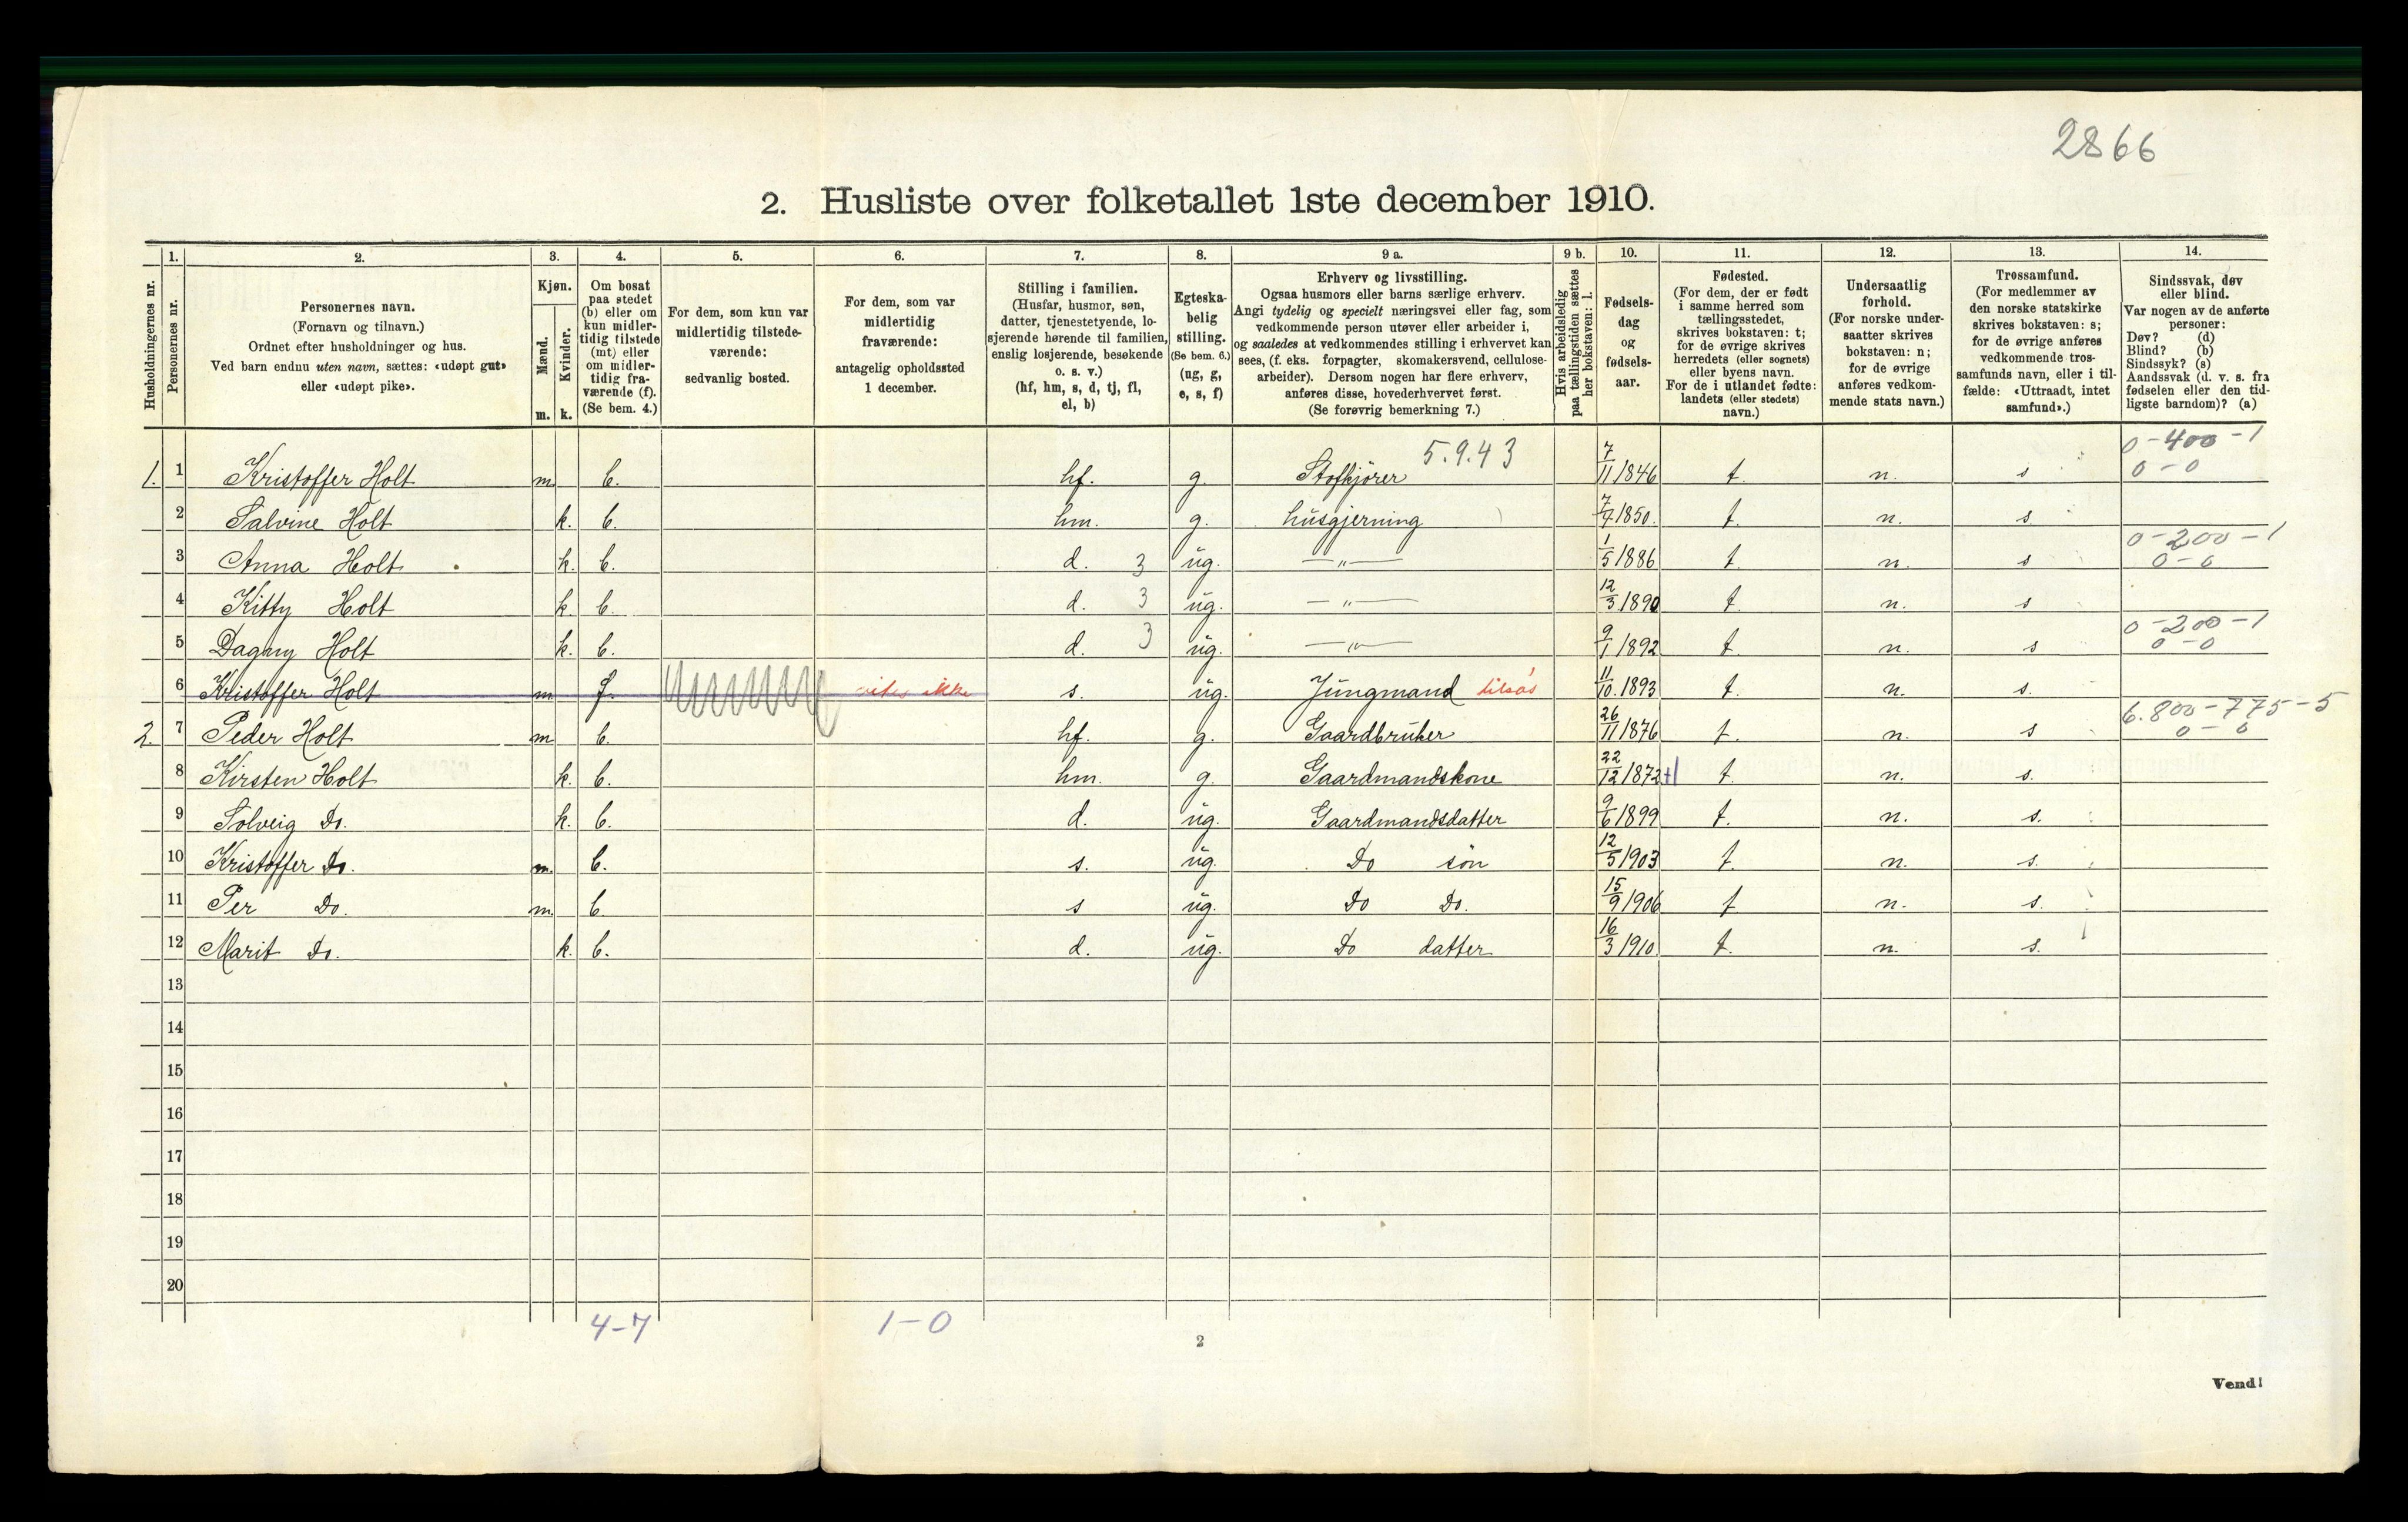 2866
2. Husliste over folketallet 1ste december 1910.
Husholdningernes nr.
1. Personernes nr.
2. Personernes navn.
(Fornavn og tilnavn.)
Ordnet efter husholdninger og hus.
Ved barn endnu uten navn, sættes: «udøpt gut»
eller «udøpt pike».
3. Kjøn.
Mænd. m.
Kvinder. k.
4. Om bosat
paa stedet
(b) eller om
kun midler-
tidig tilstede
(mt) eller
om midler-
tidig fra-
værende (f).
(Se bem. 4.)
5. For dem, som kun var
midlertidig tilstede-
værende:
sedvanlig bosted.
6. For dem, som var
midlertidig
fraværende:
antagelig opholdssted
1 december.
7. Stilling i familien.
(Husfar, husmor, søn,
datter, tjenestetyende, lo-
sjerende hørende til familien,
enslig losjerende, besøkende
o. s. v.)
(hf, hm, s, d, tj, fl,
el, b)
8. Egteska-
belig
stilling.
(Se bem. 6.)
(ug, g,
e, s, f)
9 a. Erhverv og livsstilling.
Ogsaa husmors eller barns særlige erhverv.
Angi tydelig og specielt næringsvei eller fag, som
vedkommende person utøver eller arbeider i,
og saaledes at vedkommendes stilling i erhvervet kan
sees, (f. eks. forpagter, skomakersvend, cellulose-
arbeider). Dersom nogen har flere erhverv,
anføres disse, hovederhvervet først.
(Se forøvrig bemerkning 7.)
9 b. Hvis arbeidsledig
paa tællingstiden sættes
her bokstaven: l.
10. Fødsels-
dag
og
fødsels-
aar.
11. Fødested.
(For dem, der er født
i samme herred som
tællingsstedet,
skrives bokstaven: t;
for de øvrige skrives
herredets (eller sognets)
eller byens navn.
For de i utlandet fødte:
landets (eller stedets)
navn.)
12. Undersaatlig
forhold.
(For norske under-
saatter skrives
bokstaven: n;
for de øvrige
anføres vedkom-
mende stats navn.)
13. Trossamfund.
(For medlemmer av
den norske statskirke
skrives bokstaven: s;
for de øvrige anføres
vedkommende tros-
samfunds navn, eller i til-
fælde: «Uttraadt, intet
samfund».)
14. Sindssvak, døv
eller blind.
Var nogen av de anførte
personer:
Døv? (d)
Blind? (b)
Sindssyk? (s)
Aandssvak (d. v. s. fra
fødselen eller den tid-
ligste barndom)? (a)
5.9.43 0-400-1
1. 1 Kristoffer Holt m b. hf. g. 7/11 1846 t. n. s 0-0
2 Salvine Holt k. b. hm. g. husgjerning 7/7 1850. t. n. s
0-200-1
3 Anna Holt k. b. d. 3 ug. —"— 1/5 1886 t. n. s 0-0
4 Kitty Holt k. b. d. 3 ug. —"— 12/3 1890 t. n. s
0-200-1
5 Dagny Holt k. b. d. 3 ug. —"— 9/1 1892 t. n. s 0-0
6 Kristoffer Holt m f. vites ikke s. ug. Jungmand tilsøs 11/10. 1893 t. n. s.
6.800-775-5
2. 7 Peder Holt m b. hf. g. Gaardbruker 26/11 1876 t. n. s 0-0
8 Kirsten Holt k. b. hm. g. Gaardmandskone 22/12 1872 t. n. s.
9 Solveig Do. k. b. d. ug. Gaardmandsdatter 9/6 1899 t. n. s.
10 Kristoffer Do. m. b. s. ug. Do søn 12/5 1903 t. n. s.
11 Per Do. m. b. s ug. Do Do. 15/9 1906 t n. s.
12 Marit Do. k. b. d. ug. Do datter 16/3 1910. t. n. s.
13
14
15
16
17
18
19
20
4-7 1-0
2
Vend!